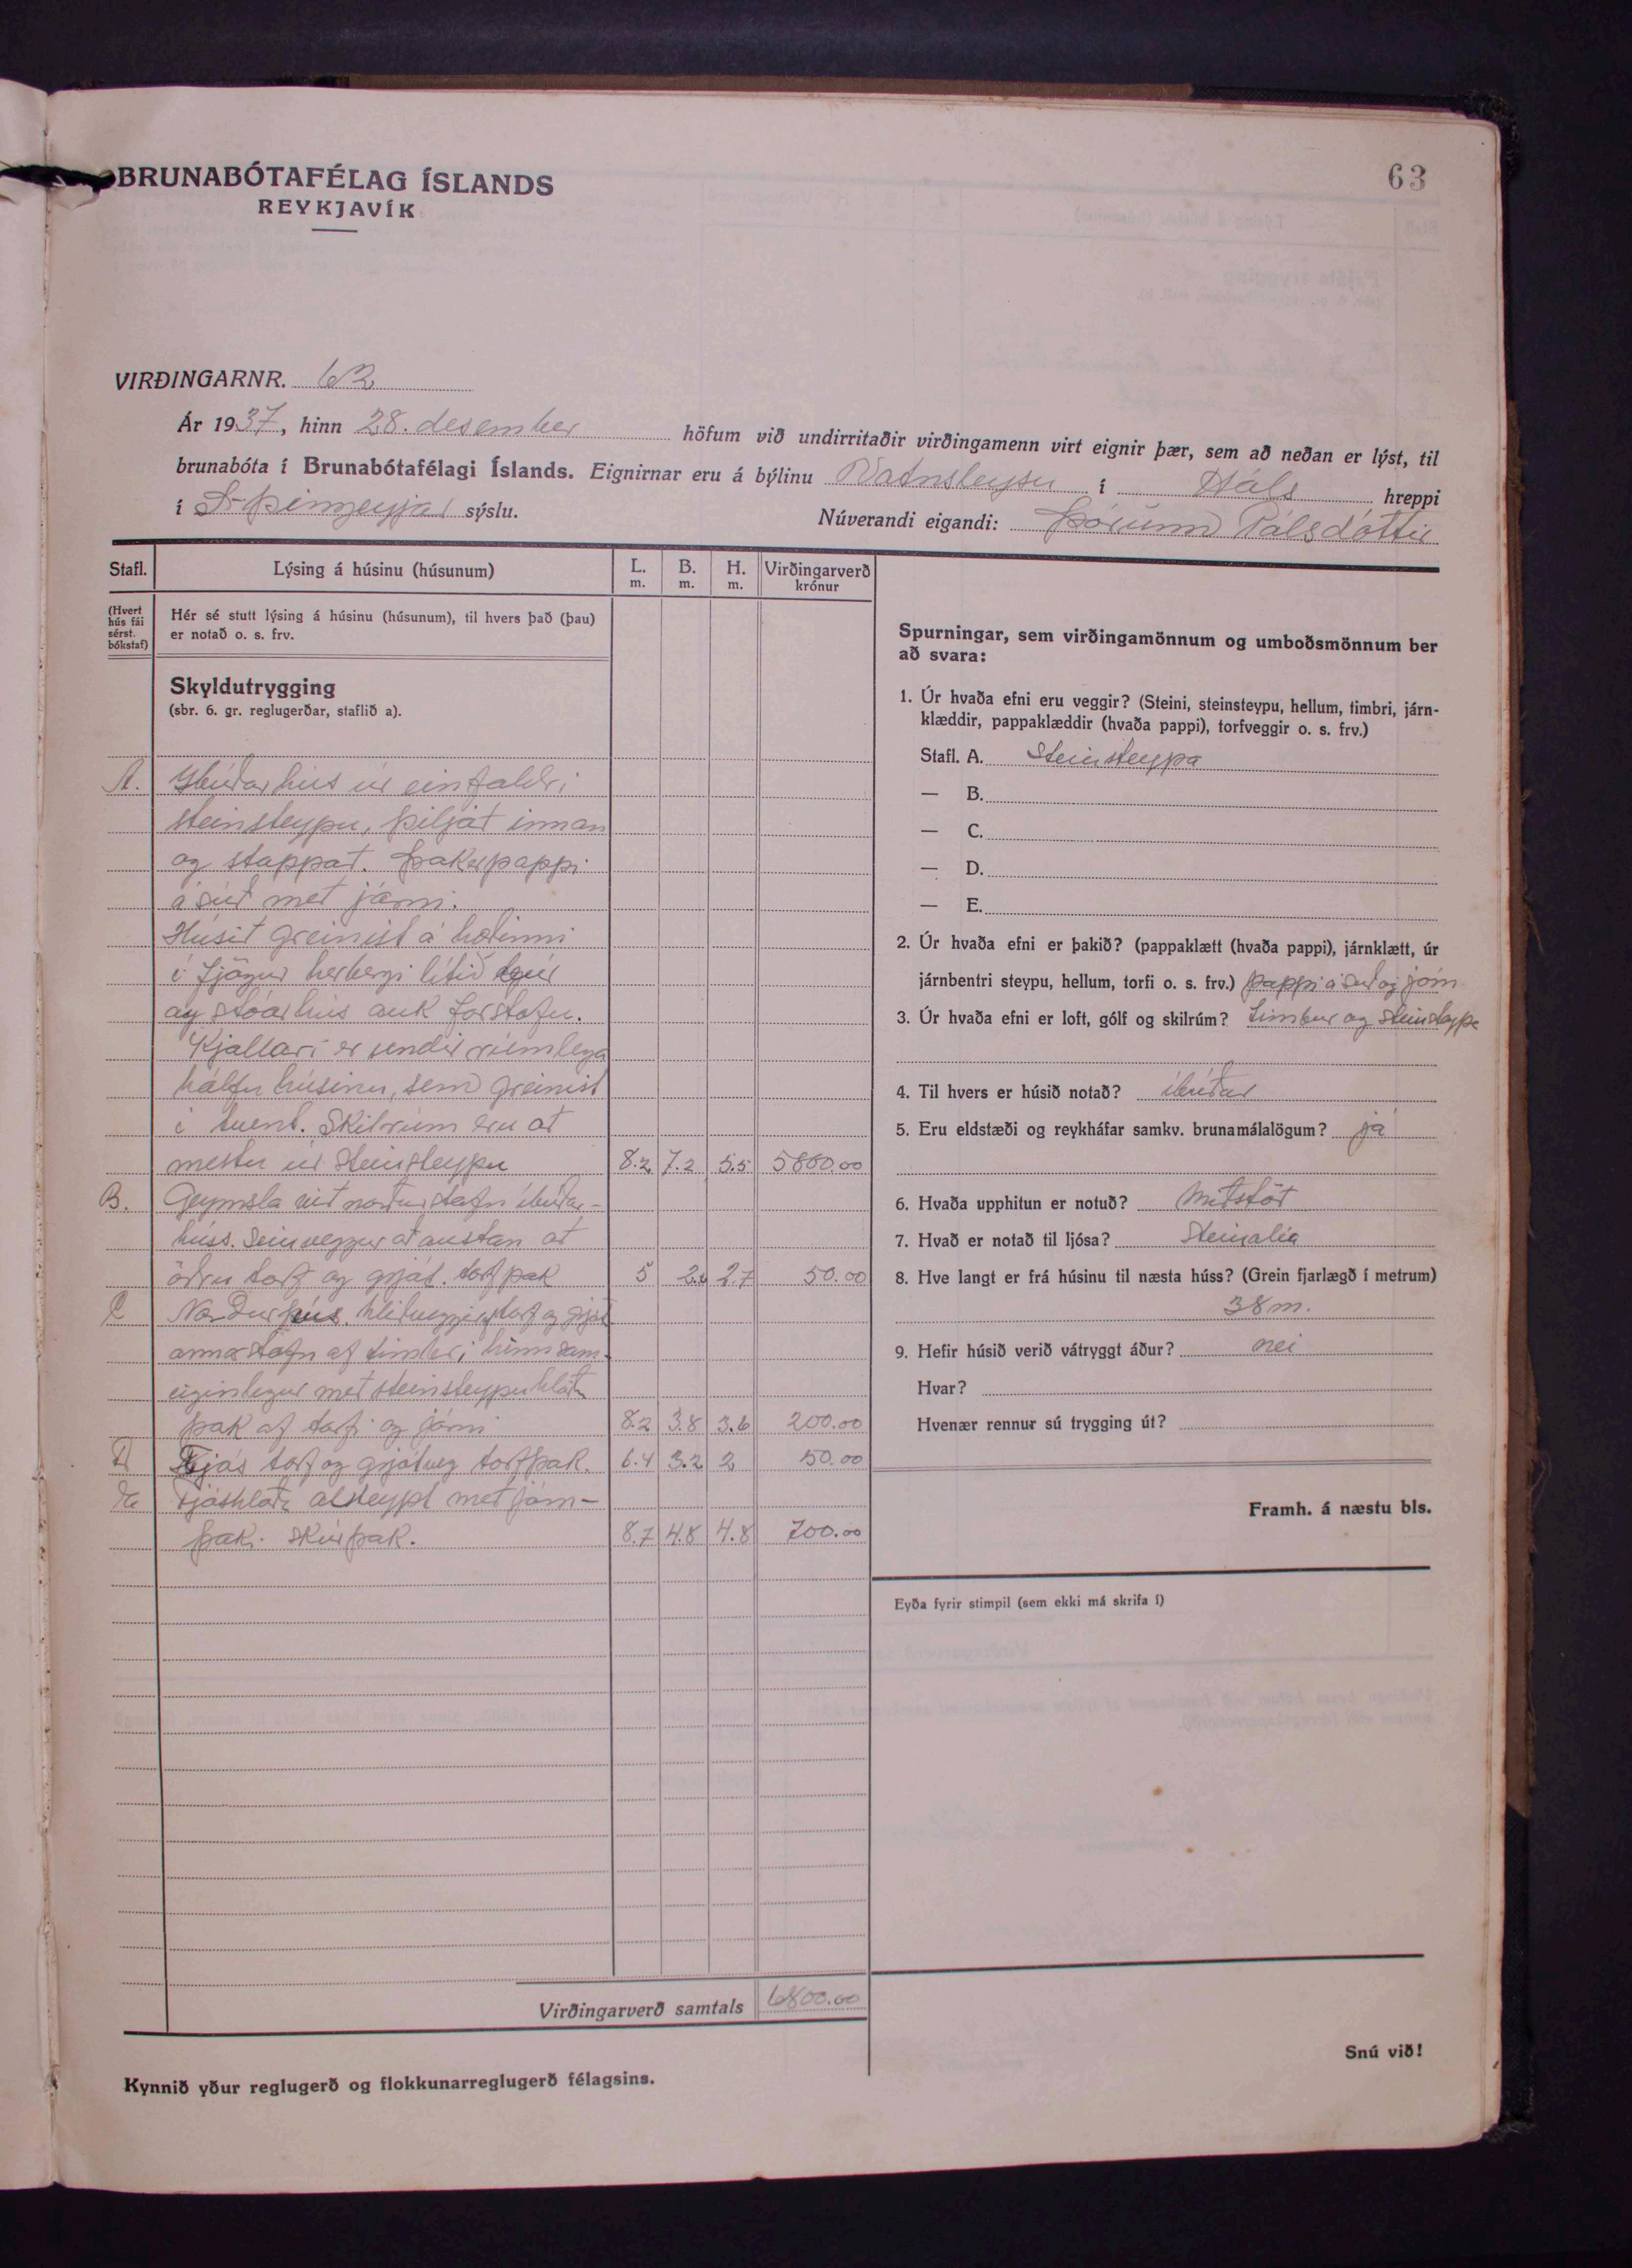 BRUNABÓTAFÉLAG ÍSLANDS
REYKJAVÍK
63
VIRÐINGARNR. 63
Ár 1937, hinn 28. desember höfum við undirritaðir virðingamenn virt eignir þær, sem að neðan er lýst, til
brunabóta í Brunabótafélagi Íslands. Eignirnar eru á býlinu Vatnsleysu í Háls hreppi
í S-Þingeyjar sýslu.
Núverandi eigandi: Þórunn Pálsdóttir
Stafl. Lýsing á húsinu (húsunum) L. m. B. m. H. m. Virðingarverð krónur
(Hvert hús fái sérst. bókstaf)
Hér sé stutt lýsing á húsinu (húsunum), til hvers það (þau)
er notað o. s. frv.
Skyldutrygging
(sbr. 6. gr. reglugerðar, staflið a).
A. Íbúðarhús úr einfaldri
steinsteypu, þiljat innan
og stappat. Þak er pappi
á súð met járni.
Húsit greinist á hæðinni
í fjögur herbergi lítið búr
og stóarhús auk forstofu.
Kjallari er undir rúmlega
hálfu húsinu, sem greinist
í tvent. Skilrúm eru at
mestu úr steinsteypu 8.2 7.2 5.5 5800.00
B. Geymsla vit norðurstafn íbúðar-
húss. Steinveggur at austan at
öðru torf og grjót. torfþak 5 2.6 2.7 50.00
C Norðurhús. hliðveggir torf og grjót
annar stafn af timbri hinn sam-
eiginlegur met steinsteypuhlöðu
þak af torfi og járni 8.2 3.8 3.6 200.00
D Fjós torf og grjótveg torfþak. 6.4 3.2 2 50.00
E Fjóshlaða alsteypt met járn-
þaki. skúrþak. 8.7 4.8 4.8 700.00
Virðingarverð samtals 6800.00
Kynnið yður reglugerð og flokkunarreglugerð félagsins.
Spurningar, sem virðingamönnum og umboðsmönnum ber
að svara:
1. Úr hvaða efni eru veggir? (Steini, steinsteypu, hellum, timbri, járn-
klæddir, pappaklæddir (hvaða pappi), torfveggir o. s. frv.)
Stafl. A. Steinsteypa
— B.
— C.
— D.
— E.
2. Úr hvaða efni er þakið? (pappaklætt (hvaða pappi), járnklætt, úr
járnbentri steypu, hellum, torfi o. s. frv.) pappi á súð og járn
3. Úr hvaða efni er loft, gólf og skilrúm? Timbur og steinsteypa
4. Til hvers er húsið notað? íbúðar
5. Eru eldstæði og reykháfar samkv. brunamálalögum? já
6. Hvaða upphitun er notuð? Mitstöt
7. Hvað er notað til ljósa? Steinolía
8. Hve langt er frá húsinu til næsta húss? (Grein fjarlægð í metrum)
38 m.
9. Hefir húsið verið vátryggt áður? nei
Hvar?
Hvenær rennur sú trygging út?
Framh. á næstu bls.
Eyða fyrir stimpil (sem ekki má skrifa í)
Snú við!